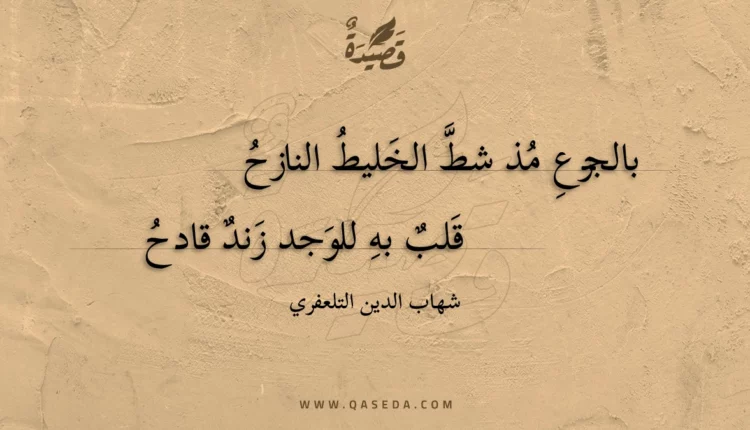 قَصِيْدَةٌ
بالجزعِ مُذ شطَّ الخَليطُ النازحُ
قَلبٌ بهِ للوَجد زَندٌ قادحُ
شهاب الدين التلعفري
WWW.QASEDA.COM